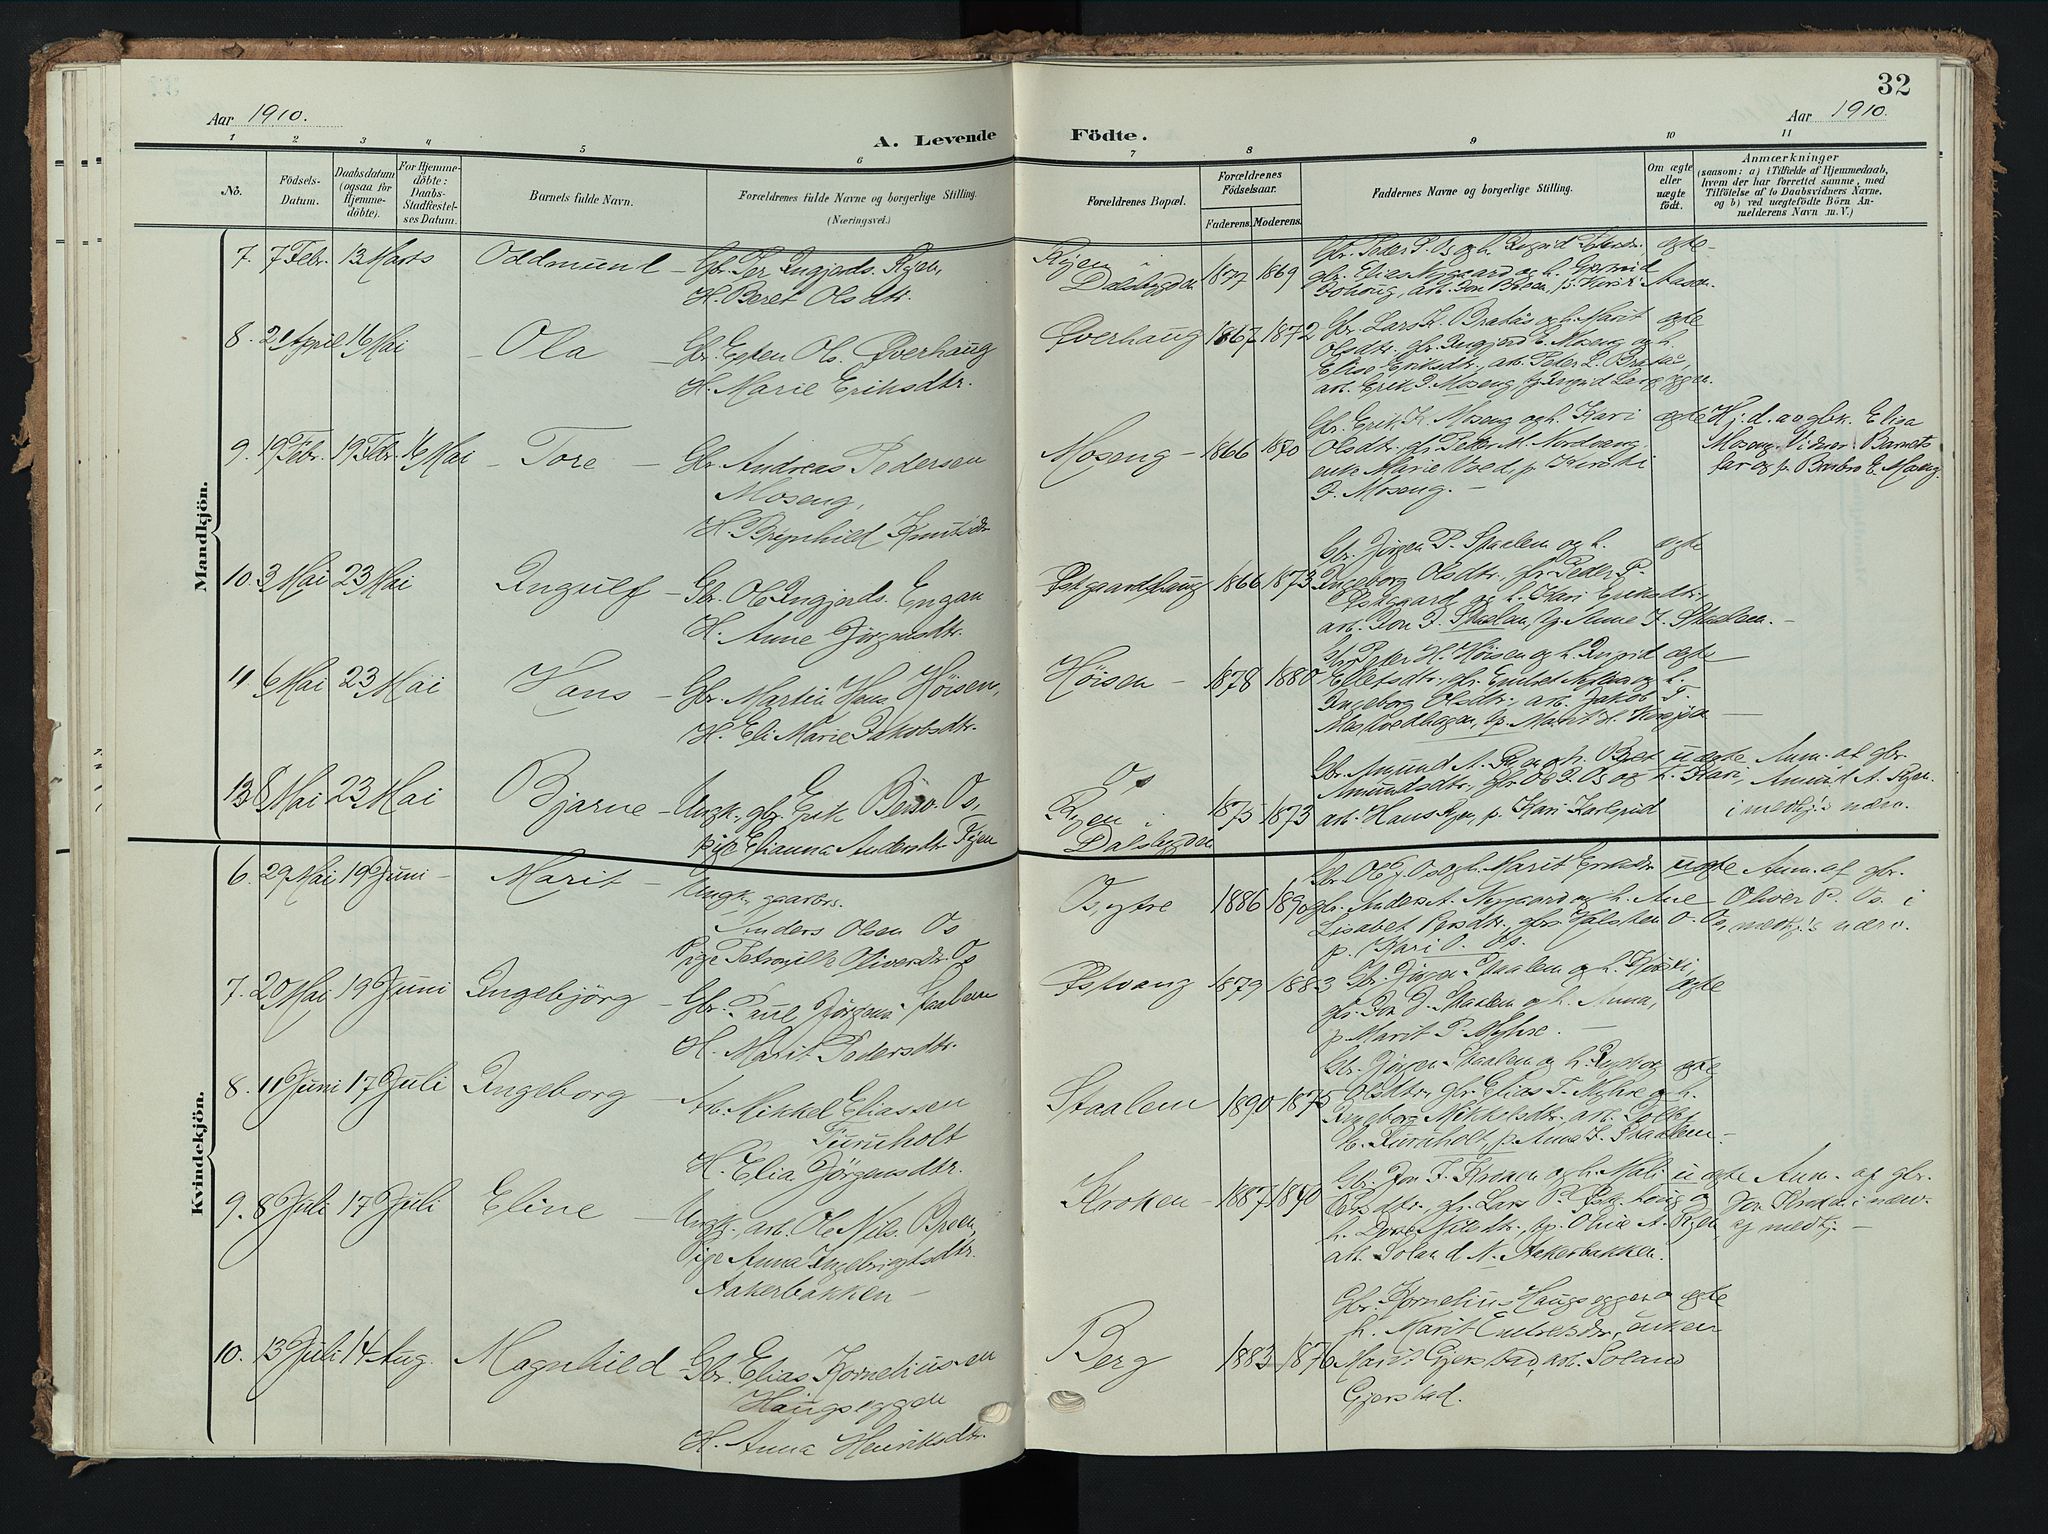 32
Aar 1910.
Aar 1910.
A. Levende Födte.
1 2 3 4 5 6 7 8 9 10 11
No.
Födsels-Datum.
Daabsdatum (ogsaa for Hjemme-döbte).
For Hjemme-döbte: Daabs-Stadfæstel-ses Datum.
Barnets fulde Navn.
Forældrenes fulde Navne og borgerlige Stilling.
(Næringsvei.)
Forældrenes Bopæl.
Forældrenes Födselsaar.
Faderens. Moderens.
Faddernes Navne og borgerlige Stilling.
Om ægte eller uægte födt.
Anmærkninger
(saasom: a) i Tilfælde af Hjemmedaab, hvem der har forrettet samme, med Tilföielse af to Daabsvidners Navne, og b) ved uægtefödte Börn An-melderens Navn m. V.)
Mandkjön.
7. 7 Febr. 13 Marts Oddmund Gbr. Per Ingjerds. Ryen,
H. Beret Olsdtr.
Ryen i Dalsbygden 1877 1869
Gbr. Peder P. Os og h. Ingrid
gbr. Elias Nygaard og h.
ægte
8. 21 April 16 Mai Ola Gbr. Esten Ols. Øverhaug
H. Marie Eriksdtr.
Øverhaug 1867 1872
Gbr. Lars K. Bratås og h. Marit
Olsdtr., gbr. Ingjerd E. Moseng og h.
Elise Eriksdtr., arb. Peter L. Bratås,
arb. Erik P. Moseng, p. Ingrid
ægte
9. 19 Febr. 19 Febr. 16 Mai Tore Gbr. Andreas Pedersen
Moseng,
H. Brynhild Knutsdtr.
Moseng 1866 1870
Gbr. Erik K. Moseng og h. Kari
Olsdtr., gbr. Peter M. Nordvang,
enke Marie Tved, p. Kirsti
P. Moseng.
ægte
Hj. d. av gbk. Elisa
Moseng. Vidner: Barnets
far og p. Barbro E. Moseng.
10. 3 Mai 23 Mai Ingulf Gbr. Ole Ingjerds. Engan
H. Anne Jørgensdtr.
Østgaardshaug 1866 1873
Gbr. Jørgen P. Staalen og h.
Ingeborg Olsdtr., gbr. Peder P.
Østgaard og h. Kari Eriksdtr.,
arb. Jon J. Staalen, p. Anne J. Staalen.
ægte
11. 6 Mai 23 Mai Hans Gbr. Martin Hans. Höisen,
H. Eli Marie Jakobsdtr.
Höisen 1878 1880
Gbr. Peder H. Höisen og h. Ingrid
Ellefsdtr., gbr. Embret og h.
Ingeborg Olsdtr., arb. Jakob T.
p. Marit H.
ægte
13 8 Mai 23 Mai Bjarne Ungk., gbr. Erik Os,
pige Elianna Andersdtr. Ryen
Os
Ryen i Dalsbygden 1875 1873
Gbr. Amund A. Ryen og h. Beret
Amundsdtr., gbr. Ole P. Os og h. Kari,
arb. Hans Ryen, p. Kari
uægte
Anm. af gbr.
Amund A. Ryen
i medkj.s nærv.
Kvindekjön.
6. 29 Mai 19 Juni Marit Ungk. gaardbr.
Anders Olsen Os
Pige Petronille Oliversdtr. Os
Os, ytre 1886 1890
Gbr. Ole J. Os og h. Marit Eriksdtr.
gbr. Anders A. Nygaard og h. Ane
Lisabet Persdtr., gbrs. Halsten O. Os,
p. Kari O. Os.
uægte
Anm. af gbr.
Oliver P. Os i
medkj.s nærv.
7. 20 Mai 19 Juni Ingebjörg Gbr. Paul Jörgens. Staalen
H. Marit Pedersdtr.
Østvang 1879 1883
Gbr. Jörgen Staalen og h. Kjersti,
gbr. Jon J. Staalen og h. Anna,
p. Marit P. Myhre.
ægte
8. 11 Juni 17 Juli Ingeborg Arb. Mikkel Eliassen
Furuholt
H. Elia Jörgensdtr.
Staalen 1890 1875
Gbr. Jörgen Staalen og h. Ingeborg
Olsdtr., gbr. Elias T. Myhre og h.
Ingeborg Mikkelsdtr., arb.
E. Furuholt, p. Anne J. Staalen.
ægte
9. 8 Juli 17 Juli Eline Ungk., arb. Ole Nils. Bröen,
Pige Anna Ingebrigtsdtr.
Aakerbakken
Kroken 1887 1890
Gbr. Jon J. Kroken og h. Mali
Persdtr., gbr. Lars P. og
h. Dorte Nilsdtr., p. Olia N. Ryen,
arb. Soland N. Aakerbakken.
uægte
Anm. af gbr.
Jon Kroken i nærv.
af medkj.
10. 13 Juli 14 Aug. Magnhild Gbr. Elias Kornelius-sen
Haugseggen
H. Anna Henriksdtr.
Berg 1883 1876
Gbr. Kornelius Haugseggen og
h. Marit Embretsdtr., enken
Marit Gjerstad, arb. Soland
Gjerstad.
ægte